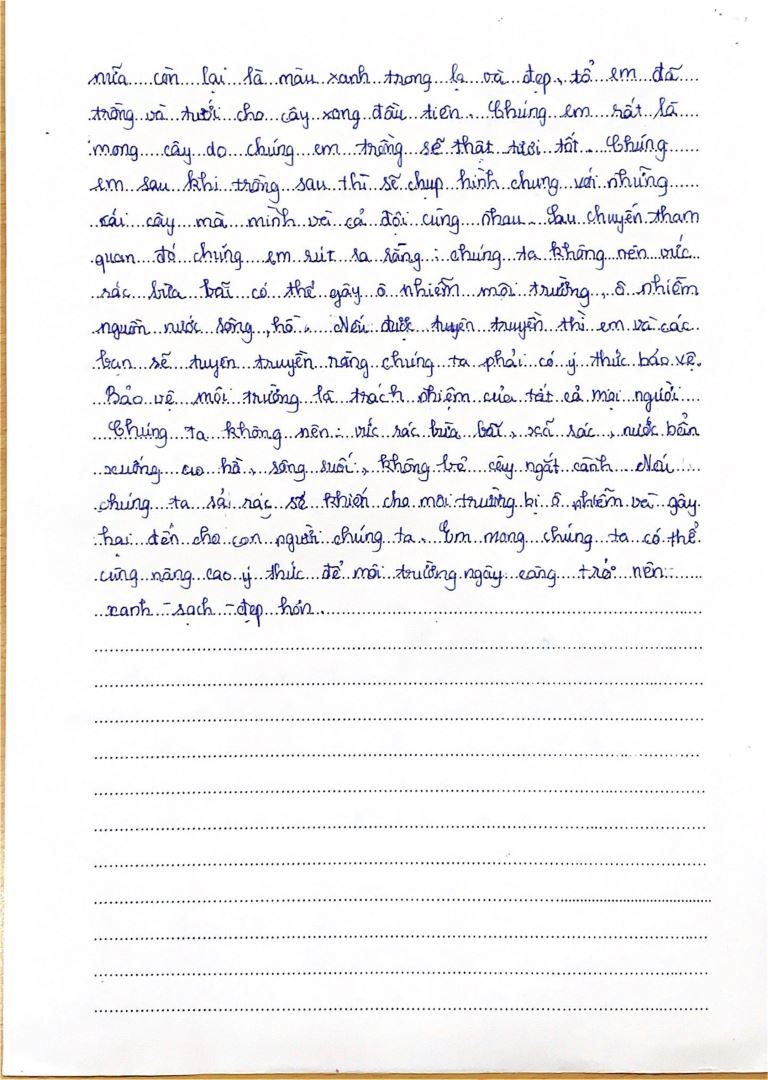 nữa còn lại là màu xanh trong lạ và đẹp, tổ em đã
trồng và tưới cho cây xong đầu tiên. Chúng em rất là
mong cây do chúng em trồng sẽ thật tươi tốt. Chúng
em sau khi trồng sau thì sẽ chụp hình chung với những
cái cây mà mình và cả đội cùng nhau. Sau chuyến tham
quan đó chúng em rút ra rằng: chúng ta không nên vức
rác bừa bãi có thể gây ô nhiễm môi trường, ô nhiễm
nguồn nước sông, hồ. Nếu được tuyên truyền thì em và các
bạn sẽ tuyên truyền rằng chúng ta phải có ý thức bảo vệ.
Bảo vệ môi trường là trách nhiệm của tất cả mọi người.
Chúng ta không nên: vức rác bừa bãi, xã rác, nước bẩn
xuống ao hồ, sông suối, không bẻ cây ngắt cành. Nếu
chúng ta sả rác sẽ khiến cho môi trường bị ô nhiễm và gây
hại đến cho con người chúng ta. Em mong chúng ta có thể
cùng nâng cao ý thức để môi trường ngày càng trở nên
xanh - sạch - đẹp hơn.